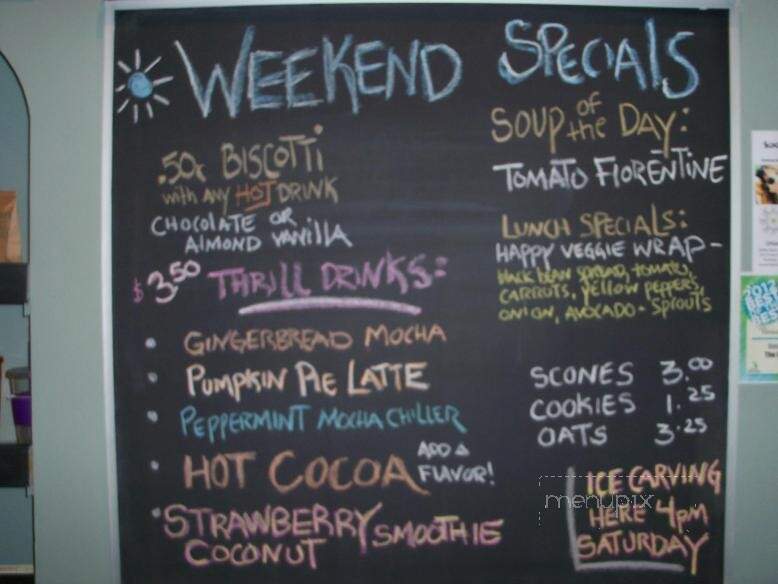 WEEKEND SPECIALS
.50¢ BISCOTTI
with ANY HOT DRINK
CHOCOLATE OR
ALMOND VANILLA
$3.50 THRILL DRINKS:
• GINGERBREAD MOCHA
• PUMPKIN PIE LATTE
• PEPPERMINT MOCHA CHILLER
• HOT COCOA ADD A FLAVOR!
• STRAWBERRY COCONUT SMOOTHIE
SOUP of the DAY:
TOMATO FlORENTINE
LUNCH SPECIALS:
HAPPY VEGGIE WRAP -
BLACK BEAN SPREAD, TOMATO,
CARROTS, YELLOW PEPPERS,
ONION, AVOCADO - SPROUTS
SCONES 3.00
COOKIES 1.25
OATS 3.25
ICE CARVING
HERE 4pm
SATURDAY
menupix
2012
BEST
OF THE
BEST